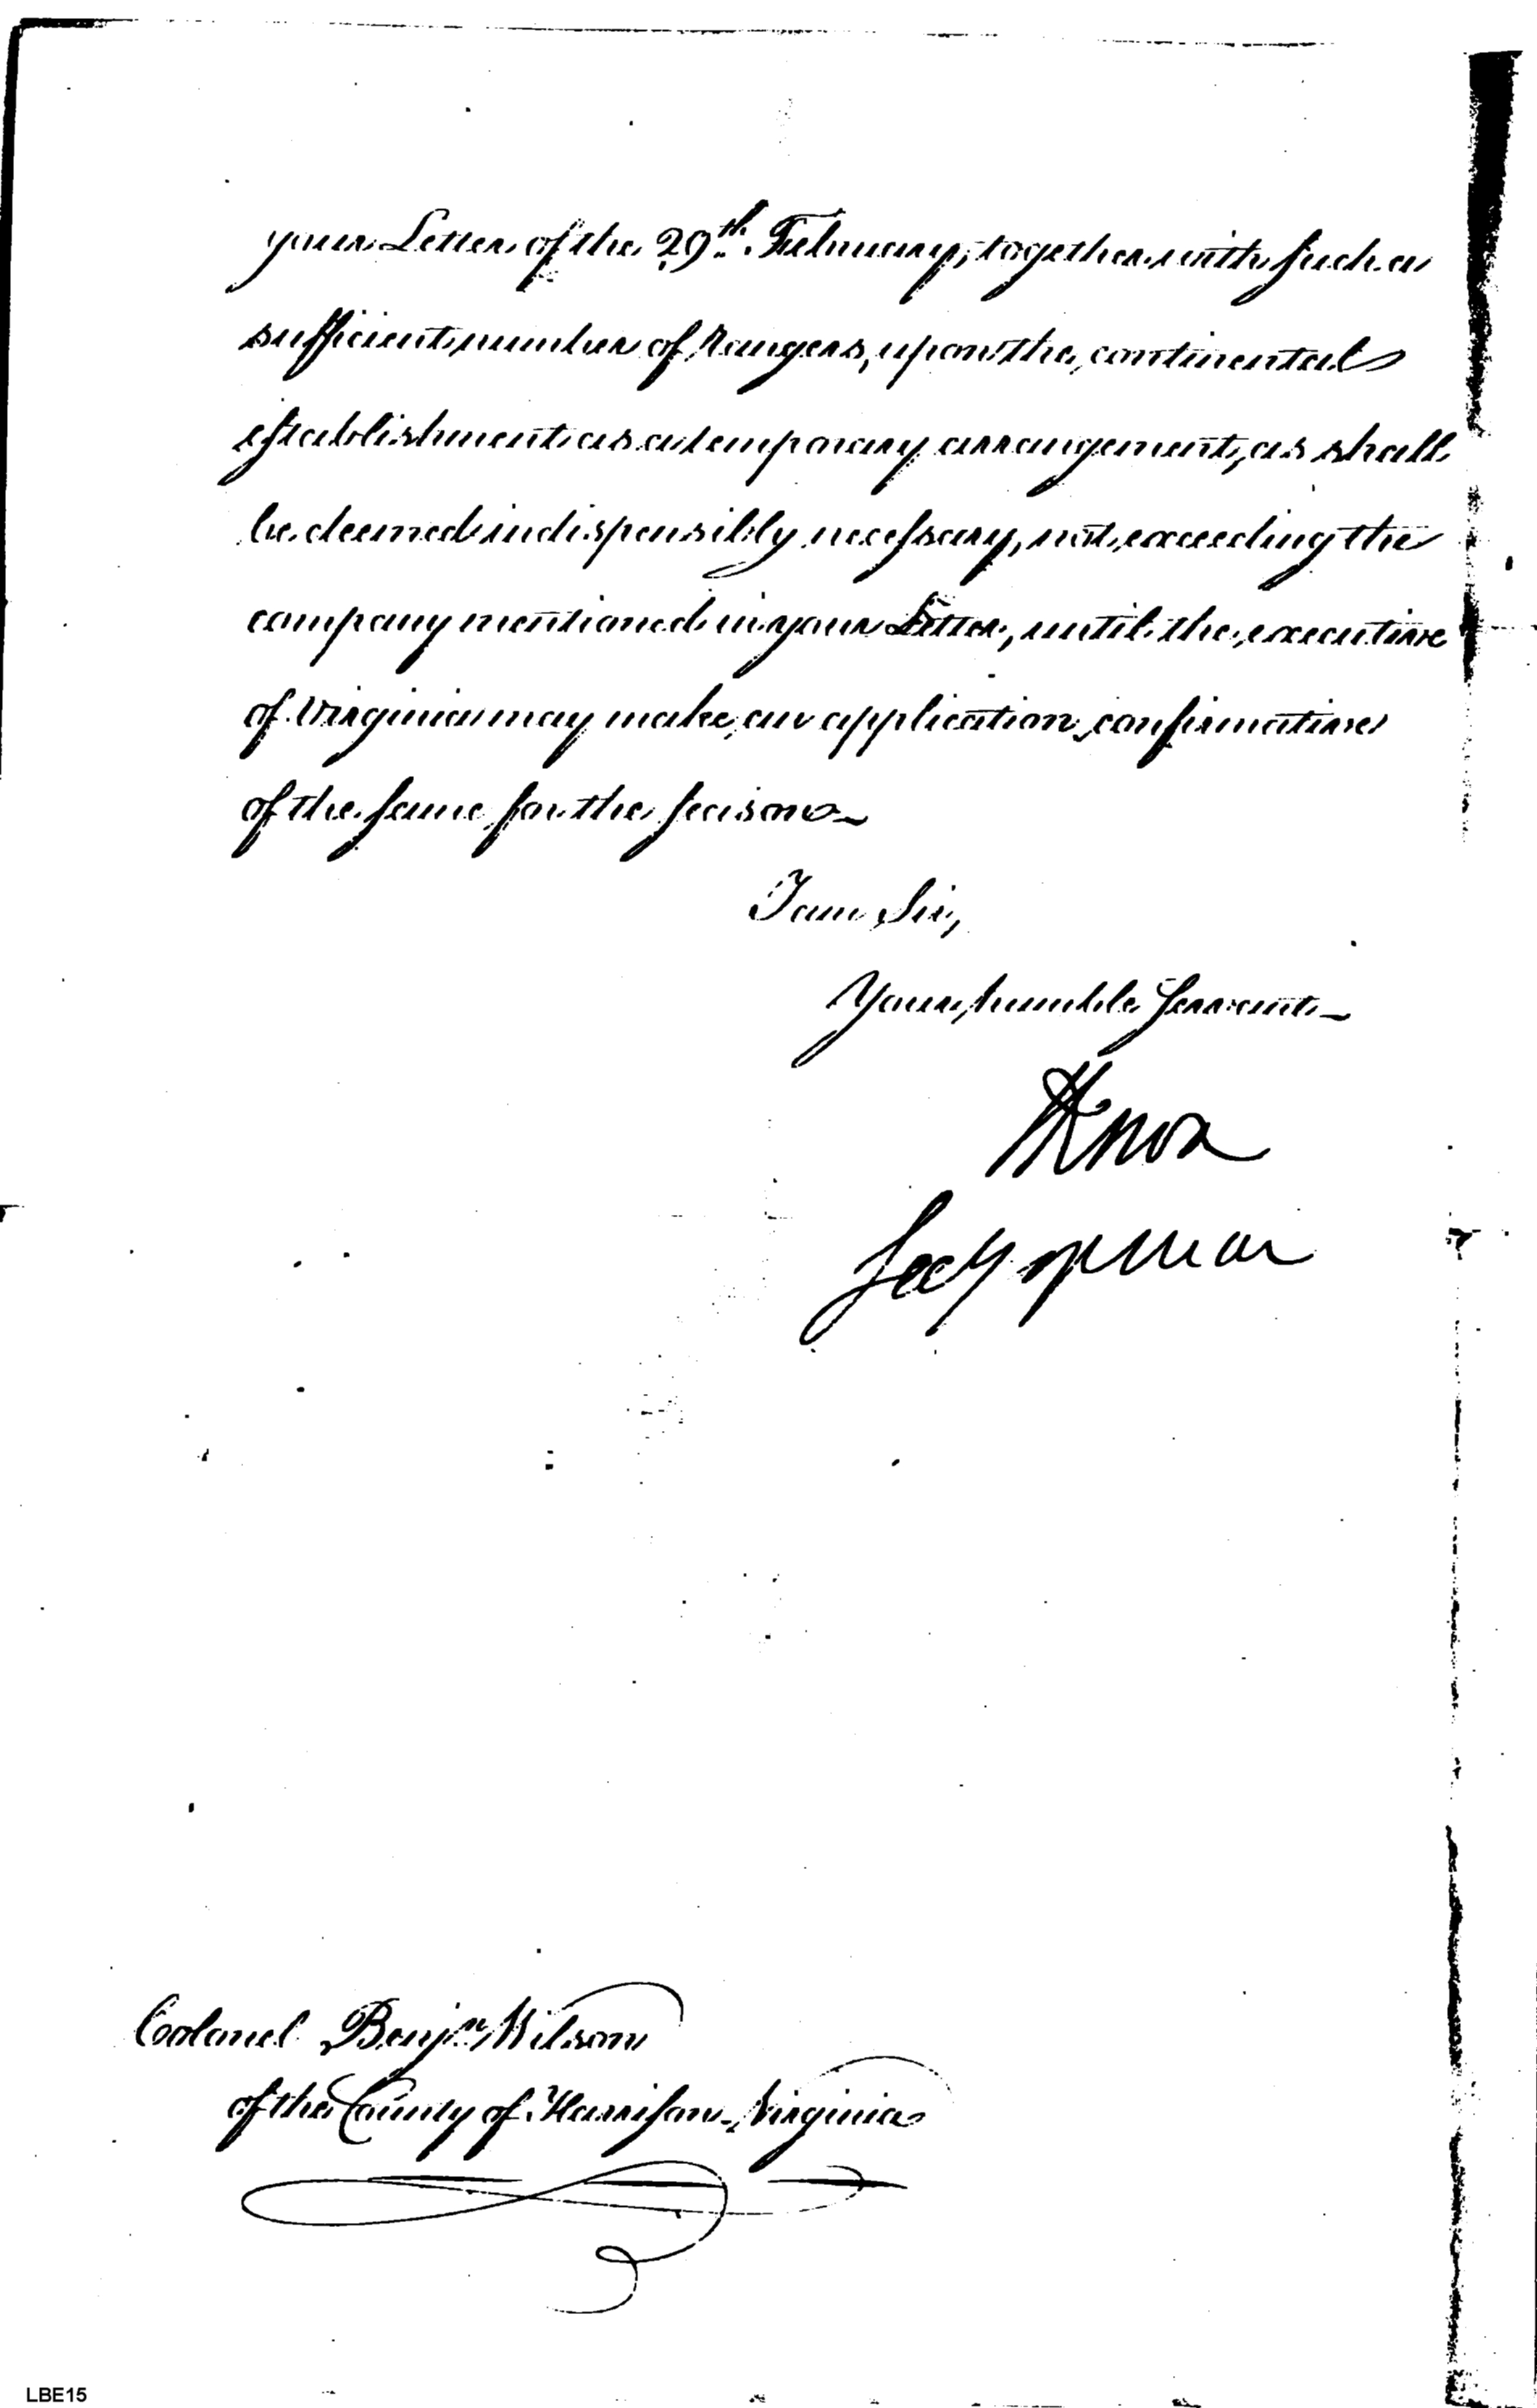 your Letter of the 29th. February, together with such a
sufficient number of Rangers, upon the continental
establishment as a temporary arrangement, as shall
be deemed indispensibly necessary, not exceeding the
company mentioned in your Letter, until the executive
of Virginia may make an application confirmative
of the same for the season—
I am Sir,
Your humble Servant—
HKnox
Secy of War
Colonel Benjn Wilson
of the County of Harrison - Virginia
LBE15